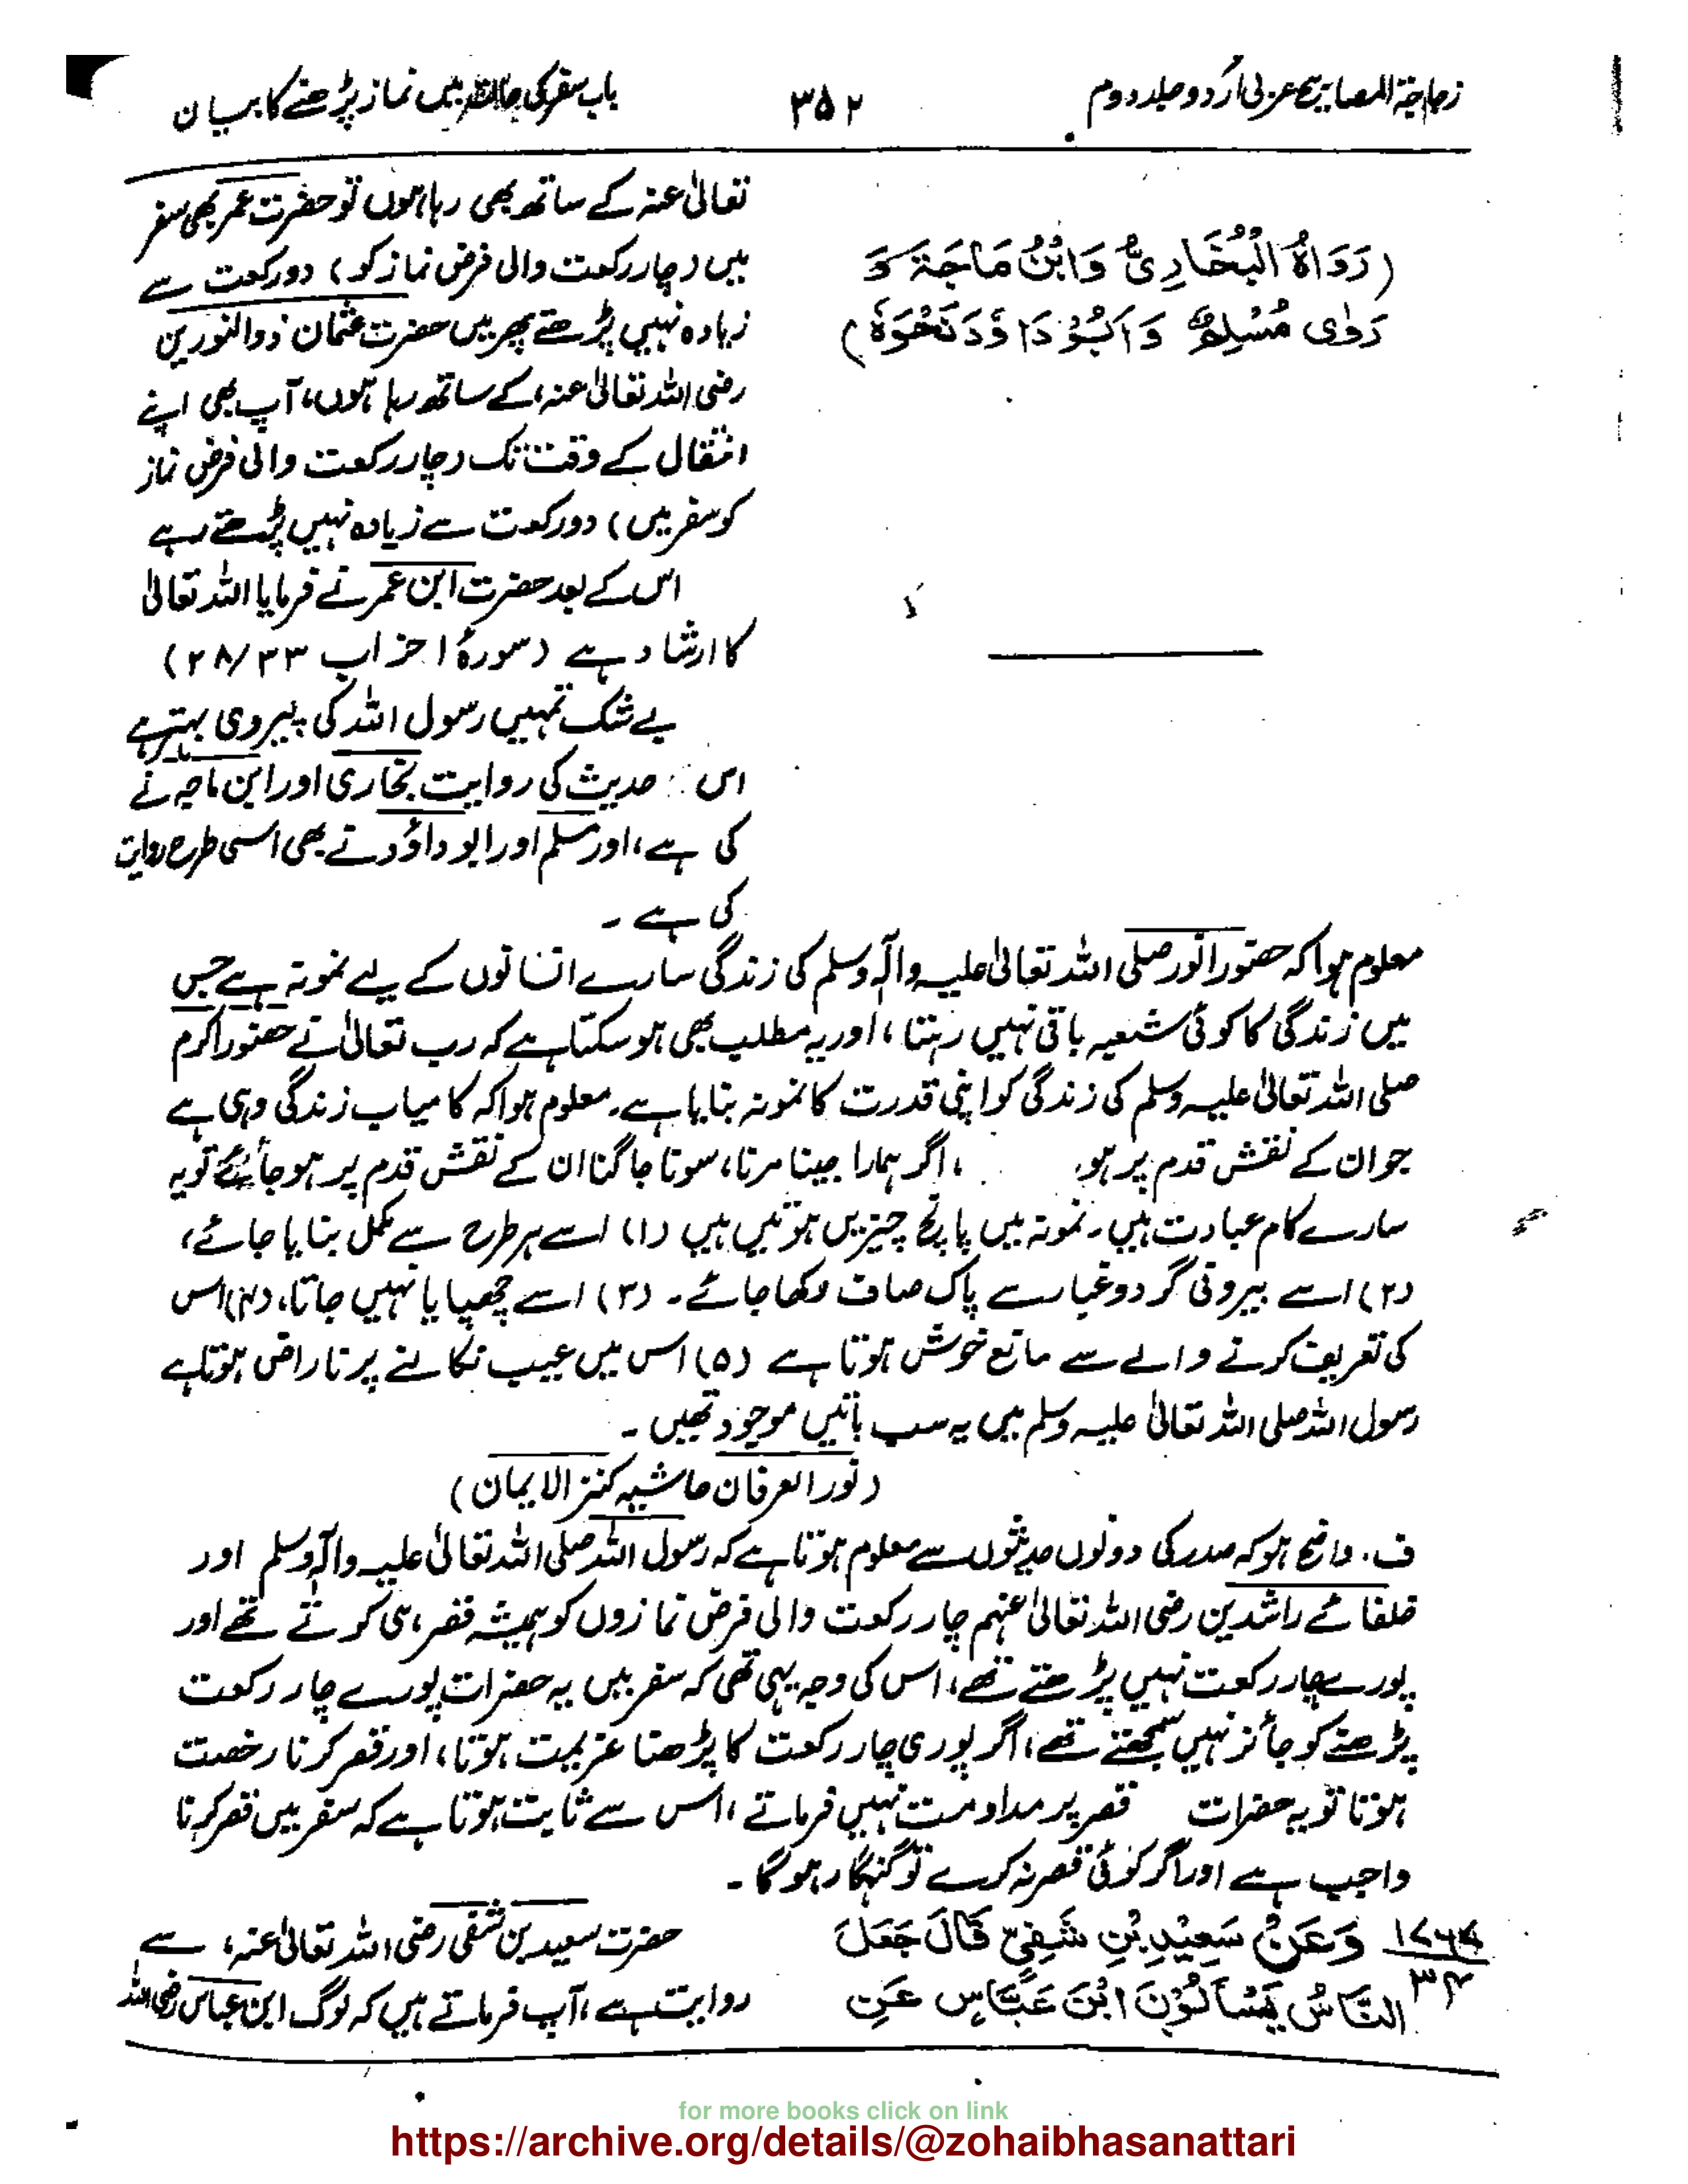 زجاجۃ المصابیح عربی اُردو جلد دوم
۳۵۲
باب سفر کی حالت میں نماز پڑھنے کا بیان
(رَوَاہُ الْبُخَارِیُّ وَابْنُ مَاجَۃَ وَ
رَوٰی مُسْلِمٌ وَاَبُوْ دَاوٗدَ نَحْوَہٗ)
تعالیٰ عنہ کے ساتھ بھی رہا ہوں تو حضرت عمر بھی سفر
میں (چار رکعت والی فرض نماز کو) دو رکعت سے
زیادہ نہیں پڑھتے پھر میں حضرت عثمان ذوالنورین
رضی اللہ تعالیٰ عنہ، کے ساتھ رہا ہوں، آپ بھی اپنے
انتقال کے وقت تک (چار رکعت والی فرض نماز
کو سفر میں) دو رکعت سے زیادہ نہیں پڑھتے رہے
اس کے بعد حضرت ابن عمر نے فرمایا اللہ تعالیٰ
کا ارشاد ہے (سورۂ احزاب ۲۸/۳۳)
بے شک تمہیں رسول اللہ کی پیروی بہتر ہے
اس حدیث کی روایت بخاری اور ابن ماجہ نے
کی ہے، اور مسلم اور ابو داؤد نے بھی اسی طرح روایت
کی ہے ۔
معلوم ہوا کہ حضور انور صلی اللہ تعالیٰ علیہ وآلہٖ وسلم کی زندگی سارے انسانوں کے لیے نمونہ ہے جس
میں زندگی کا کوئی شعبہ باقی نہیں رہتا، اور یہ مطلب بھی ہو سکتا ہے کہ رب تعالیٰ نے حضور اکرم
صلی اللہ تعالیٰ علیہ وسلم کی زندگی کو اپنی قدرت کا نمونہ بنایا ہے۔ معلوم ہوا کہ کامیاب زندگی وہی ہے
جو ان کے نقش قدم پر ہو، ، اگر ہمارا جینا مرنا، سونا جاگنا ان کے نقش قدم پر ہو جائینگے تو یہ
سارے کام عبادت ہیں۔ نمونہ میں پانچ چیزیں ہوتیں ہیں (۱) اسے ہر طرح سے مکمل بنایا جائے،
(۲) اسے بیرونی گرد و غبار سے پاک صاف رکھا جائے۔ (۳) اسے چھپایا نہیں جاتا، (۴) اس
کی تعریف کرنے والے سے صانع خوش ہوتا ہے (۵) اس میں عیب نکالنے پر ناراض ہوتا ہے
رسول اللہ صلی اللہ تعالیٰ علیہ وسلم میں یہ سب باتیں موجود تھیں ۔
(نور العرفان حاشیہ کنز الایمان)
ف. واضح ہو کہ صدر کی دونوں حدیثوں سے معلوم ہوتا ہے کہ رسول اللہ صلی اللہ تعالیٰ علیہ وآلہٖ وسلم اور
خلفائے راشدین رضی اللہ تعالیٰ عنہم چار رکعت والی فرض نمازوں کو ہمیشہ قصر ہی کرتے تھے اور
پورے چار رکعت نہیں پڑھتے تھے، اس کی وجہ یہی تھی کہ سفر میں یہ حضرات پورے چار رکعت
پڑھنے کو جائز نہیں سمجھتے تھے، اگر پوری چار رکعت کا پڑھنا عزیمت ہوتا، اور قصر کرنا رخصت
ہوتا تو یہ حضرات قصر پر مداومت نہیں فرماتے، اس سے ثابت ہوتا ہے کہ سفر میں قصر کرنا
واجب ہے اور اگر کوئی قصر نہ کرے تو گنہگار ہوگا ۔
۱۷۶۷ وَعَنْ سَعِیْدِ بْنِ شَفِیٍّ قَالَ جَعَلَ
۳۴ النَّاسُ یَسْأَلُوْنَ ابْنَ عَبَّاسٍ عَنِ
حضرت سعید بن شفی رضی اللہ تعالیٰ عنہ، سے
روایت ہے، آپ فرماتے ہیں کہ لوگ ابن عباس رضی اللہ
for more books click on link
https://archive.org/details/@zohaibhasanattari